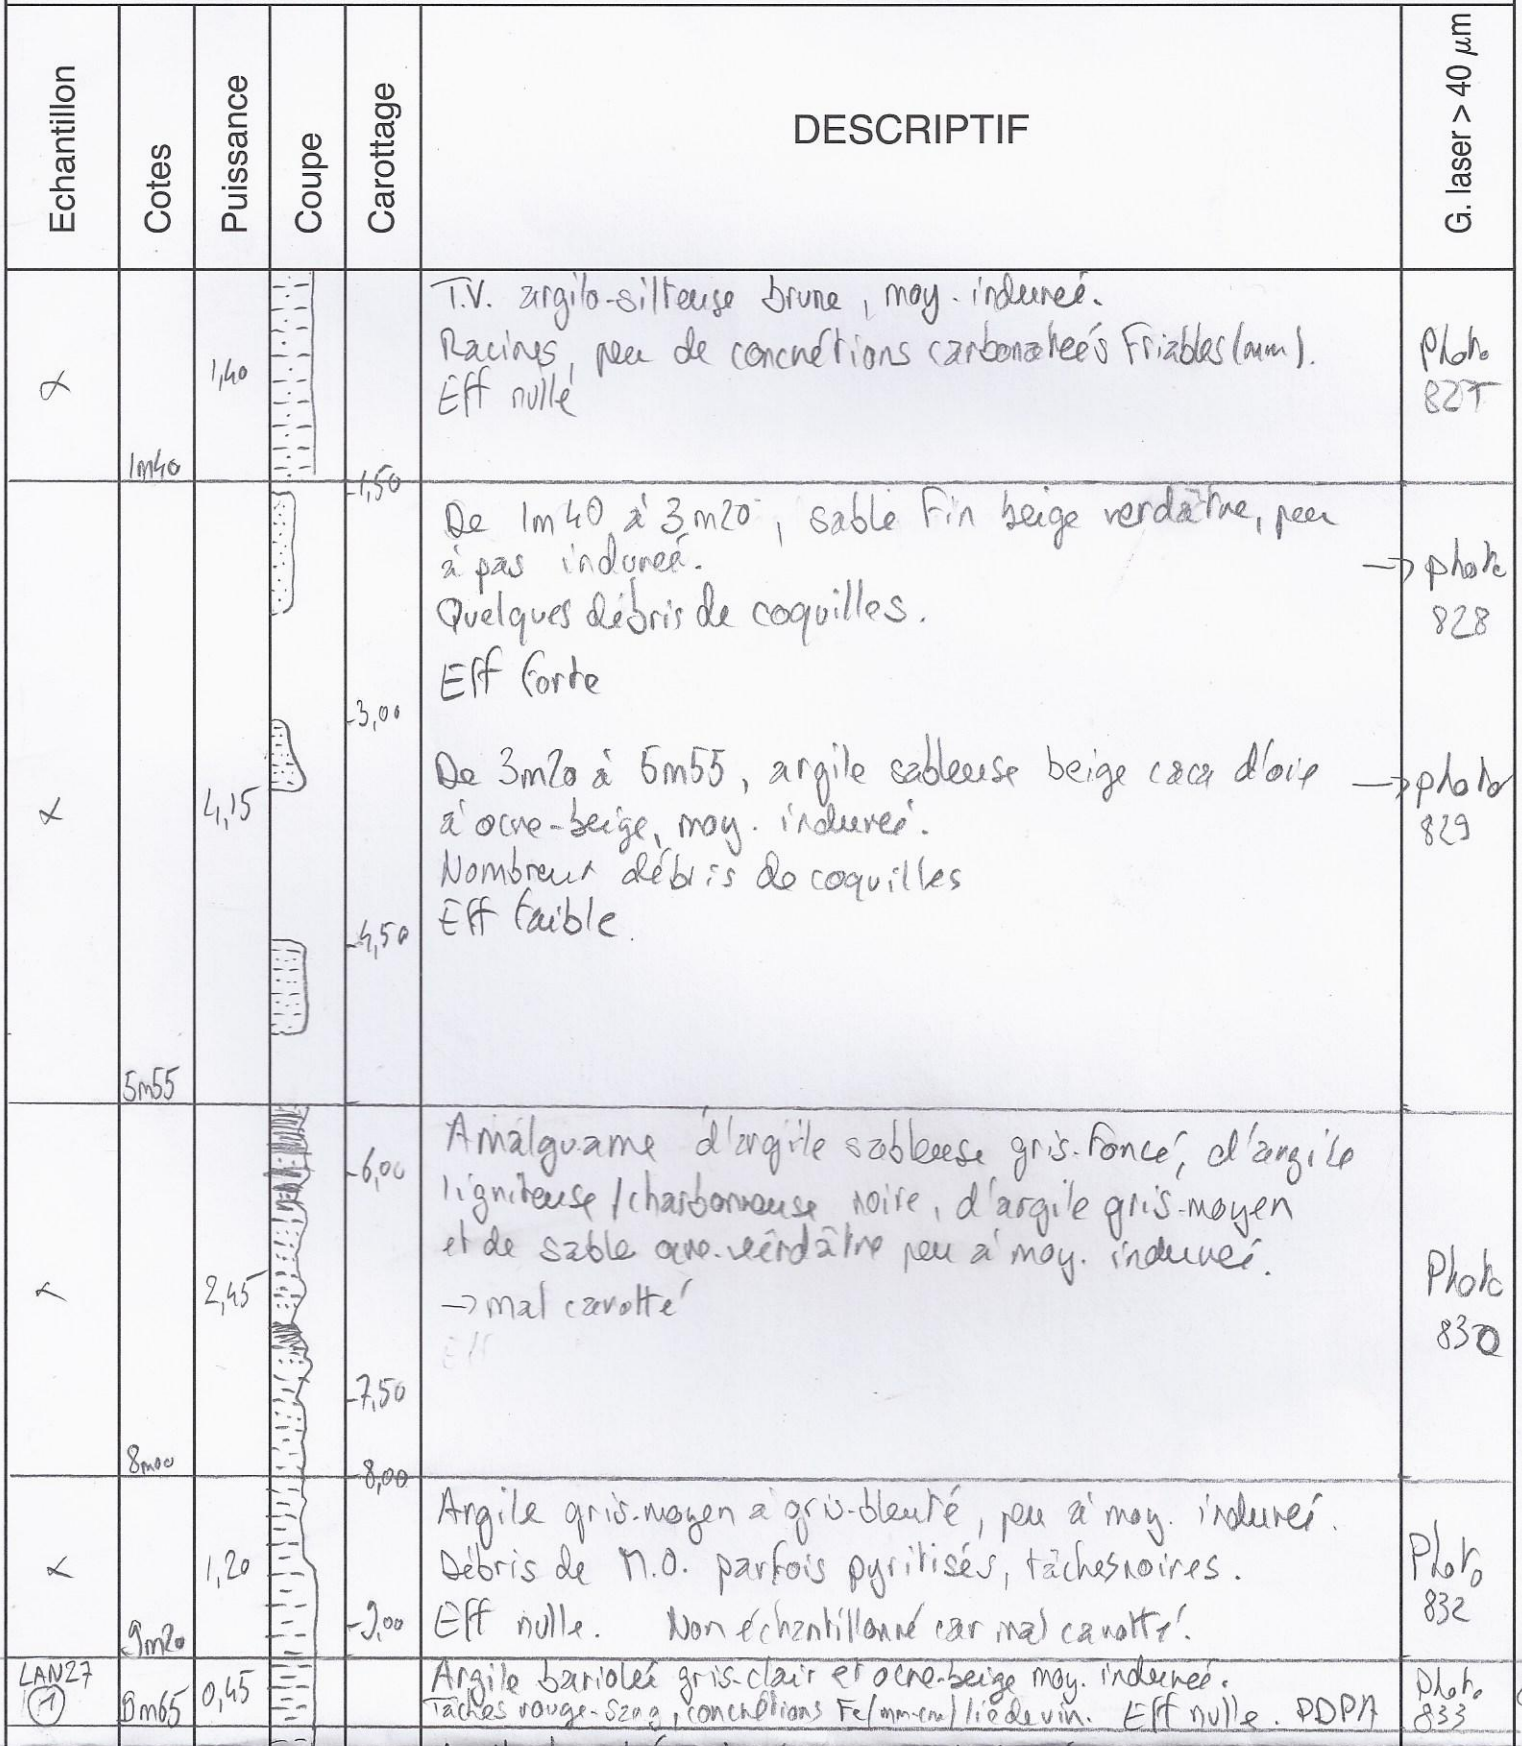 Echantillon
Cotes
Puissance
Coupe
Carottage
DESCRIPTIF
G. laser > 40 µm
1,40
1m40
T.V. argilo-silteuse brune, moy. indurée.
Racines, peu de concrétions carbonatées friables (mm).
Eff nulle
Photo
827
1,50
De 1m40 à 3m20, sable fin beige verdâtre, peu
à pas induré.
Quelques débris de coquilles.
Eff forte
→ photo
828
3,00
4,15
De 3m20 à 5m55, argile sableuse beige caca d'oie
à ocre-beige, moy. indurée.
Nombreux débris de coquilles
Eff faible.
→ photo
829
4,50
5m55
Amalguame d'argile sableuse gris-foncé, d'argile
ligniteuse/charbonneuse noire, d'argile gris-moyen
et de sable ocre-verdâtre peu à moy. induré.
→ mal carotté
Eff
6,00
2,45
7,50
8m00
Photo
830
8,00
Argile gris-moyen à gris-bleuté, peu à moy. indurée.
Débris de M.O. parfois pyritisés, tâches noires.
Eff nulle. Non échantillonné car mal carotté.
1,20
9,00
9m20
Photo
832
LAN27
1
9m65
0,45
Argile bariolée gris-clair et ocre-beige moy. indurée.
Tâches rouge-sang, concrétions Fe (mm-cm) lie de vin. Eff nulle. PDPA
Photo
833